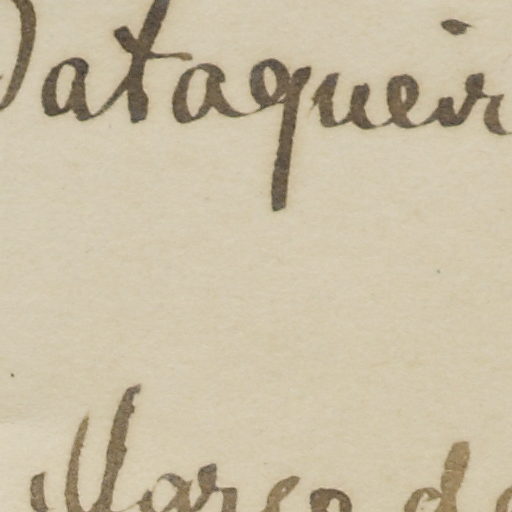 Pataqueir
Março d